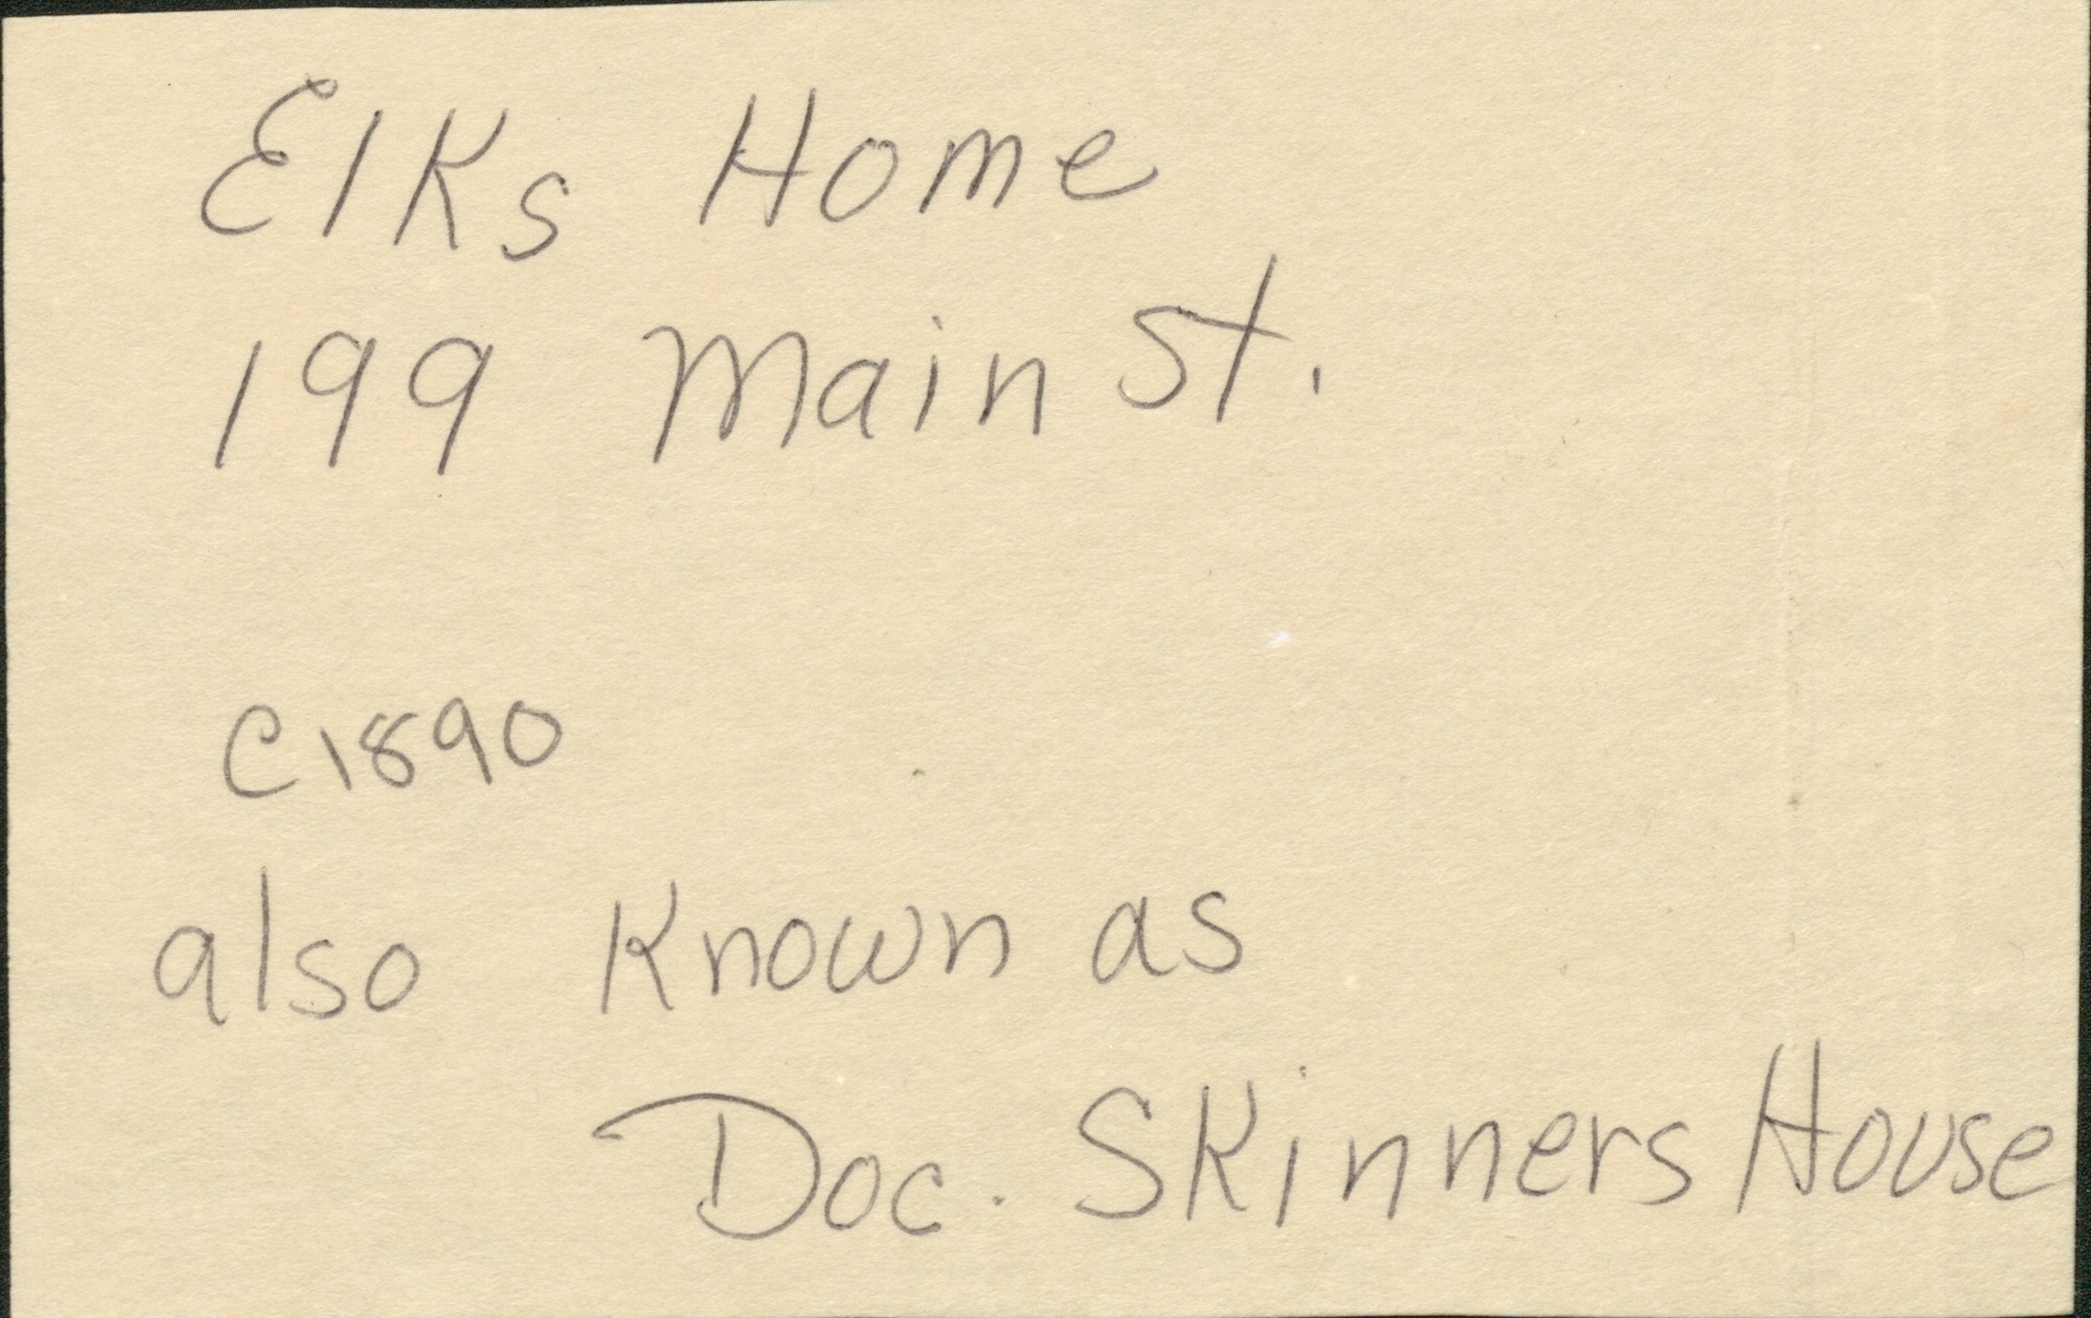 Elks Home
199 Main St.
C1890
also Known as
Doc. Skinners House